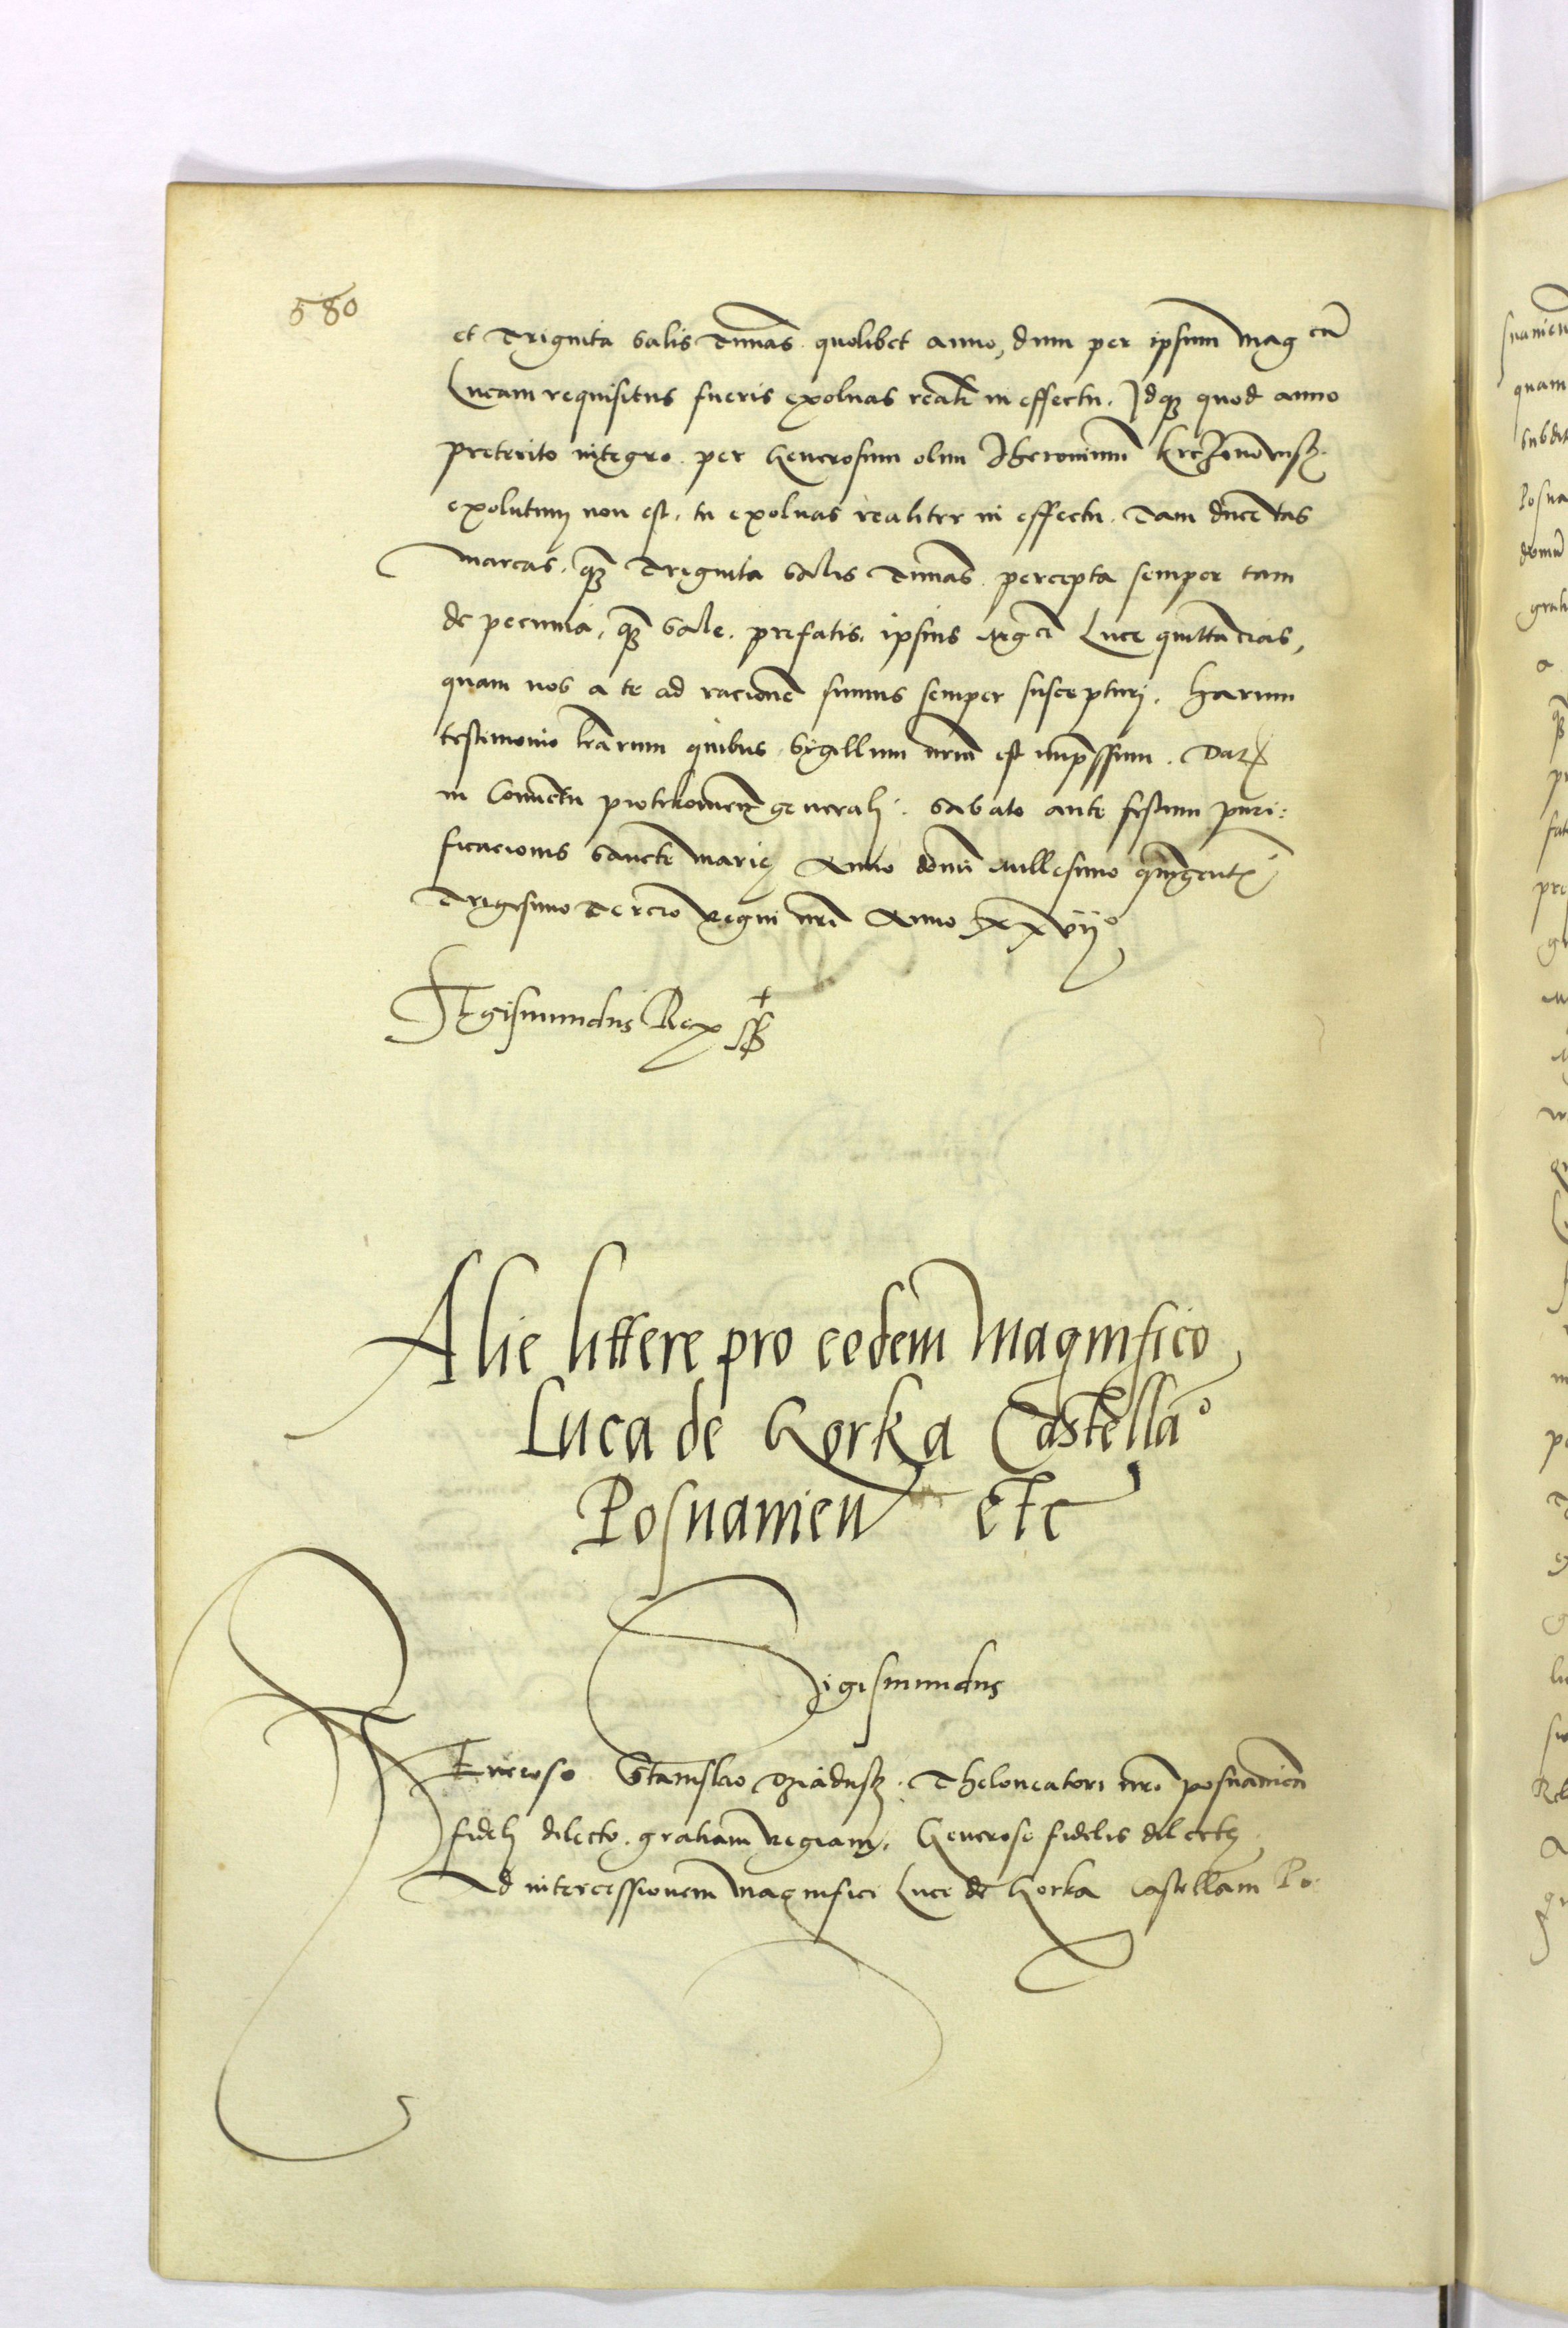 580
et Triginta salis Tunnas quolibet anno, dum per ipsum Mag cū
Lucam requisitus fueris exoluas realr̄ in effectu. Idq₃ quod anno
preterito integro per Generosum olim Iheronimum
exolutum non est, tu exoluas realiter in effectu. Tam ducentas
marcas, q̄₃ Triginta salis Tunnas percepta semper tam
de pecunia, q̄₃ sale prefatis ipsius Mgci Luce quittancias,
quam nos a te ad racionē sumus semper suscepturj. Harum
testimonio lr̄arum quibus Sigillum nrm̄ est imp̄ssum. Datx
in Conuentu piotrkowieñ generalj. Sabato ante festum puri:
ficacionis Sancte Marie Anno domī Millesimo quingentº
Trigesimo Tercio Regni nrī Anno xxvijº
Sigismundus Rex ss
Alie littere pro eodem Magnifico
Luca de Gorka Castellāº
Posnanien etc
Sigismundus
Generoso Stanislao Theloneatori nrō posnanien
fidelj dilecto gratiam Regiam. Generose fidelis dilecte
Ad intercessionem Magnifici Luce de Gorka Castellani Po: